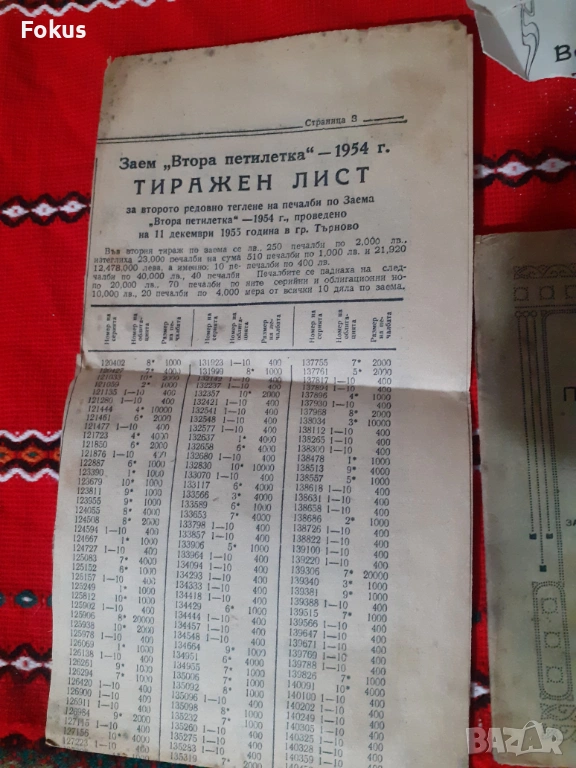 Fokus
Страница 3
Заем „Втора петилетка“ — 1954 г.
ТИРАЖЕН ЛИСТ
за второто редовно теглене на печалби по Заема
„Втора петилетка“ —1954 г., проведено
на 11 декември 1955 година в гр. Търново
Във втория тираж по заема се
изтеглиха 23,000 печалби на сума
12,478,000 лева, а именно: 10 пе-
чалби по 40,000 лв.; 40 печалби
по 20,000 лв., 70 печалби по
10,000 лв., 20 печалби по 4,000
лв., 250 печалби по 2,000 лв.,
510 печалби по 1,000 и 21,920
печалби по 400 лв.
Печалбите се паднаха на след-
ните серийни и облигационни но-
мера от всички 10 дяла по заема.
Номер на серията
Номер на облига-цията
Размер на пе-чалбата
Номер на серията
Номер на облига-цията
Размер на пе-чалбата
Номер на серията
Номер на облига-цията
Размер на пе-чалбата
120402 8* 1000
121280 1—10 400
121444 4* 10000
121461 6* 2000
121477 1—10 400
121723 4* 4000
121850 6* 2000
122887 6* 1000
123390 1* 1000
123679 10* 1000
123811 9* 1000
123955 9* 1000
124055 8* 4000
124508 8* 2000
124594 1—10 400
124667 1* 1000
124727 1—10 400
125083 7* 4000
125152 6* 1000
125157 1—10 400
125249 1* 1000
125812 10* 1000
125902 1—10 400
125906 8* 20000
125938 10* 2000
125978 1—10 400
126069 1* 1000
126138 1—10 400
126261 9* 1000
126294 7* 1000
126420 1—10 400
126900 1—10 400
126911 1—10 400
127223 1—10 400
131923 1—10 400
131999 8* 1000
132357 10* 2000
132421 1—10 400
132541 1—10 400
132548 1—10 400
132577 1—10 400
132637 1* 4000
132658 6* 4000
132680 1—10 400
132830 10* 10000
133070 1—10 400
133117 6* 4000
133566 3* 4000
133589 6* 1000
133653 7* 4000
133798 1—10 400
133857 1—10 400
133906 5* 1000
133964 1—10 400
134094 1—10 400
134293 1—10 400
134333 1—10 400
134418 1—10 400
134429 6* 1000
134444 1—10 400
134457 1—10 400
134548 1—10 400
134664 9* 1000
134951 6* 1000
134955 6* 4000
135006 7* 1000
135073 7* 1000
135098 5* 1000
135232 7* 1000
135260 1—10 400
135275 1—10 400
135283 1—10 400
135319 7* 2000
137755 7* 2000
137761 5* 2000
137817 1—10 400
137896 4* 1000
137930 1—10 400
137968 8* 2000
138034 3* 10000
138112 1—10 400
138265 1—10 400
138309 1—10 400
138478 1* 1000
138513 9* 4000
138557 5* 1000
138618 1—10 400
138631 1—10 400
138658 1—10 400
138686 2* 1000
138726 1—10 400
138822 1—10 400
139100 1—10 400
139220 1—10 400
139306 7* 20000
139340 3* 1000
139381 9* 1000
139388 1—10 400
139515 4* 1000
139566 1—10 400
139647 1—10 400
139671 1—10 400
139769 1—10 400
139788 1—10 400
139826 7* 1000
140091 1—10 400
140202 1—10 400
140249 1—10 400
140325 1—10 400
140345 1—10 400
BAZAR